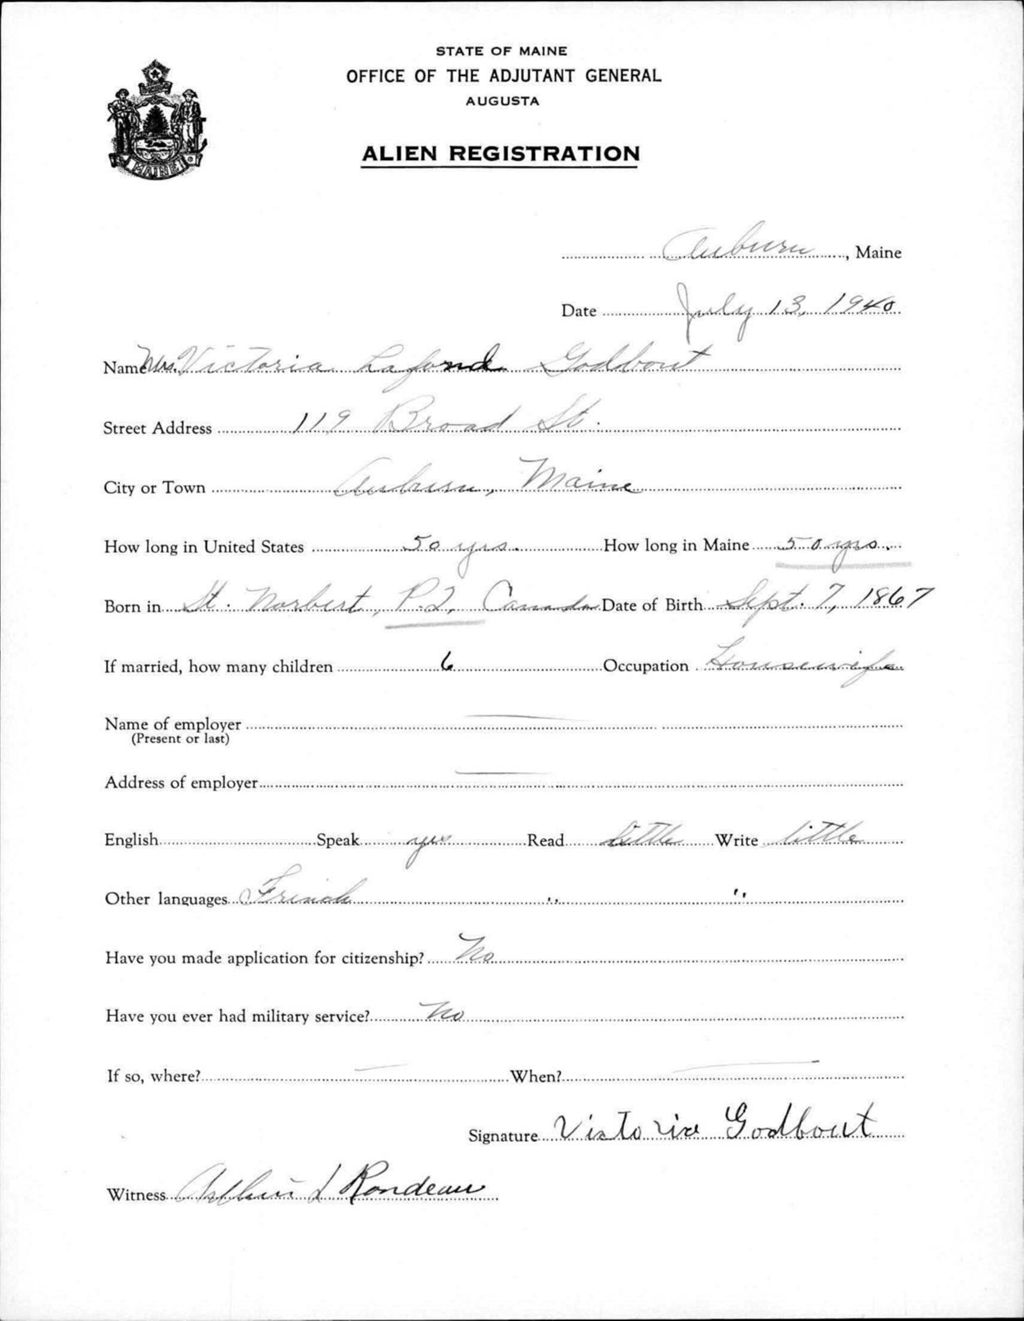 STATE OF MAINE
OFFICE OF THE ADJUTANT GENERAL
AUGUSTA
ALIEN REGISTRATION
MAINE
Auburn, Maine
Date July 13, 1940
Name Mrs. Victoria Lafond Godbout
Street Address 119 Broad St.
City or Town Auburn, Maine
How long in United States 50 yrs. How long in Maine 50 yrs.
Born in St. Norbert, P.Q. Canada Date of Birth Sept. 7, 1867
If married, how many children 6 Occupation Housewife
Name of employer
(Present or last)
Address of employer
English Speak yes Read little Write little
Other languages French " "
Have you made application for citizenship? No
Have you ever had military service? No
If so, where? When?
Signature Victoria Godbout
Witness Arthur L Rondeau